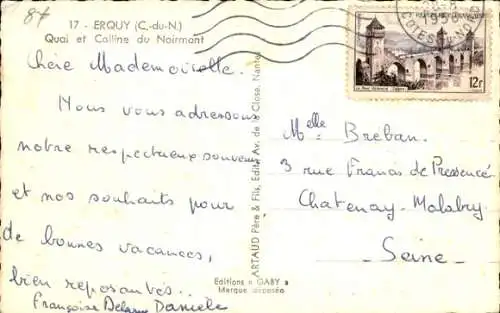 87
17 - ERQUY (C.-du-N.)
Quai et Colline du Noirmont
Chère Mademoiselle.
Nous vous adressons
notre respectueux souvenir
et nos souhaits pour
de bonnes vacances,
bien reposantes..
Françoise Delarue Danièle
ARTAUD Père & Fils, Edit. Av. de la Close, Nantes
Editions « GABY »
Marque déposée
POSTES
12f
COTES DU NORD
Melle Breban.
3 rue Francis de Pressencé
Chatenay-Malabry
Seine